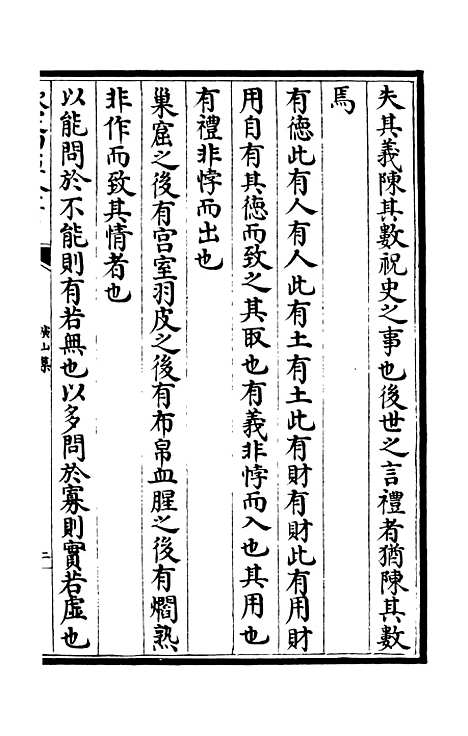 失其義陳其數祝史之事也後世之言禮者猶陳其數
焉
有德此有人有人此有土有土此有財有財此有用財
用自有其德而致之其取也有義非悖而入也其用也
有禮非悖而出也
巢窟之後有宫室羽皮之後有布帛血腥之後有爓熟
非作而致其情者也
以能問於不能則有若無也以多問於寡則實若虛也
演山集
二